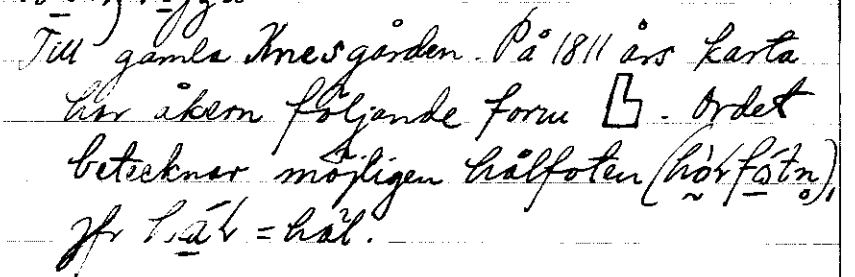 Till gamla Knesgården. På 1811 års karta
har åkern följande form . Ordet
betecknar möjligen hålfoten (
jfr = hål.